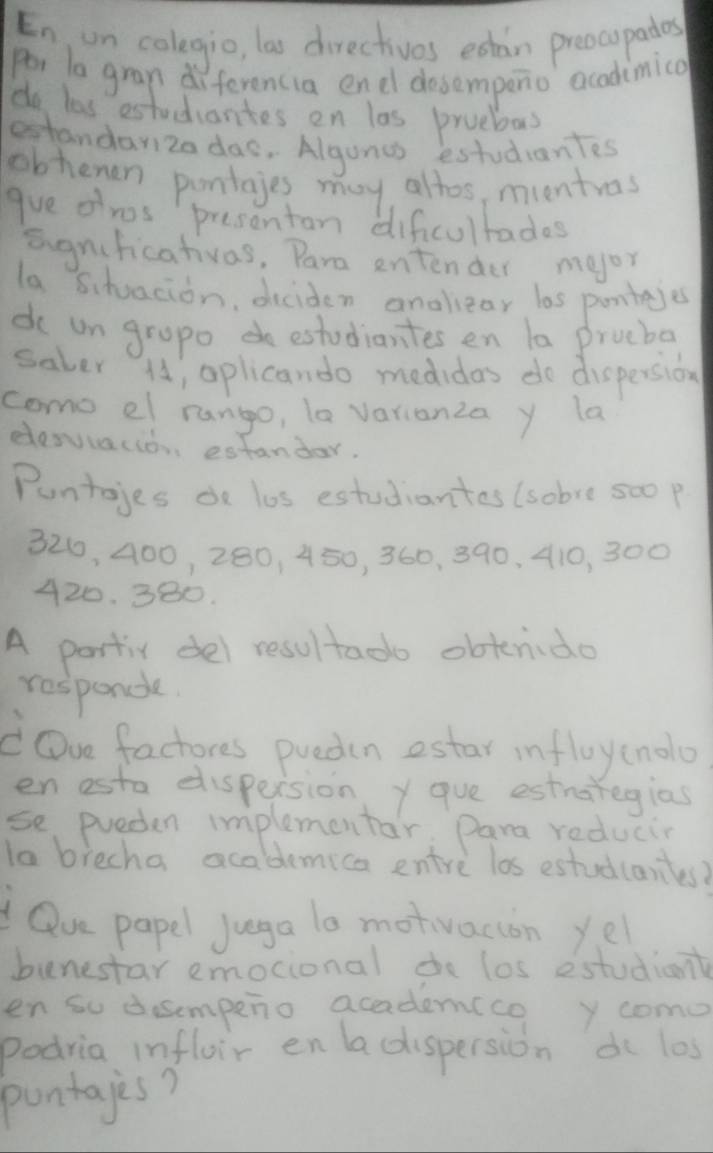 En un colegio, las directivos están preocupados
Por la gran diferencia en el desempeño academico
de los estudiantes en las pruebas
estandarizadas. Algunos estudiantes
obtienen puntajes muy altos, mientras
que otros presentan dificultades
significativas. Para entender mejor
la situación, deciden analizar los puntajes
de un grupo de estudiantes en la prueba
saber 11, aplicando medidas de dispersión
como el rango, la varianza y la
desviación estandar.
Puntajes de los estudiantes (sobre 500 p
320, 400, 280, 450, 360, 390, 410, 300
420. 380.
A partir del resultado obtenido
responde.
¿Que factores pueden estar influyendo
en esta dispersión y que estrategias
se pueden implementar Para reducir
la brecha academica entre los estudiantes?
¿Que papel juega la motivación y el
bienestar emocional de los estudiante
en su desempeño academico y como
podria influir en la dispersión de los
puntajes?